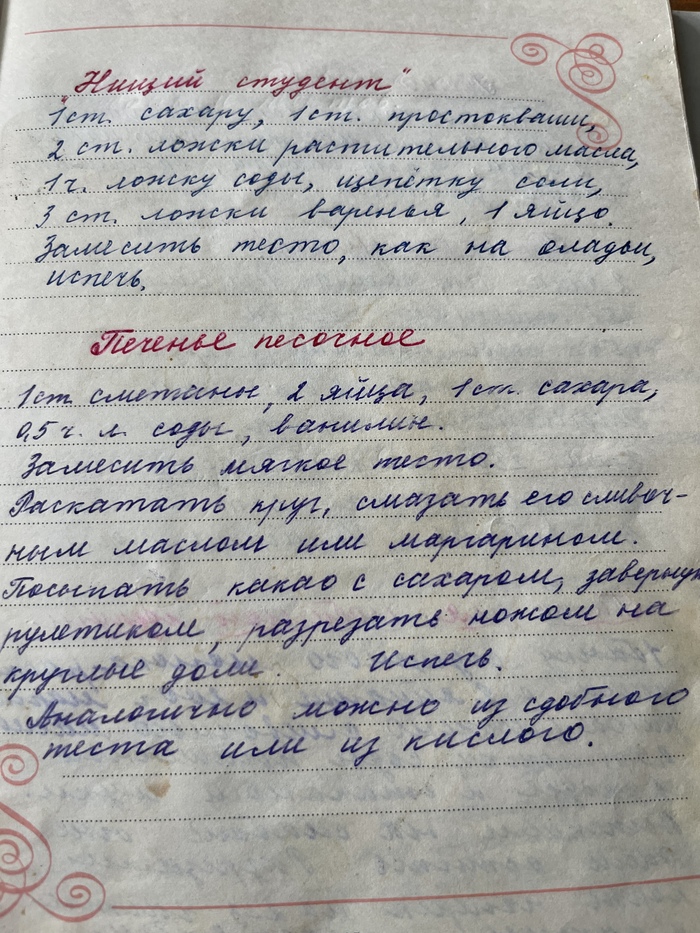 "Нищий студент"
1 ст. сахару, 1 ст. простокваши,
2 ст. ложки растительного масла,
1 ч. ложку соды, щепётку соли,
3 ст. ложки варенья, 1 яйцо.
Замесить тесто, как на оладьи,
испечь.
Печенье песочное
1 ст. сметаны, 2 яйца, 1 ст. сахара,
0,5 ч. л. соды, ванилин.
Замесить мягкое тесто.
Раскатать круг, смазать его сливоч-
ным маслом или маргарином.
Посыпать какао с сахаром, завернуть
рулетиком, разрезать ножом на
круглые доли. Испечь.
Аналогично можно из сдобного
теста или из кислого.